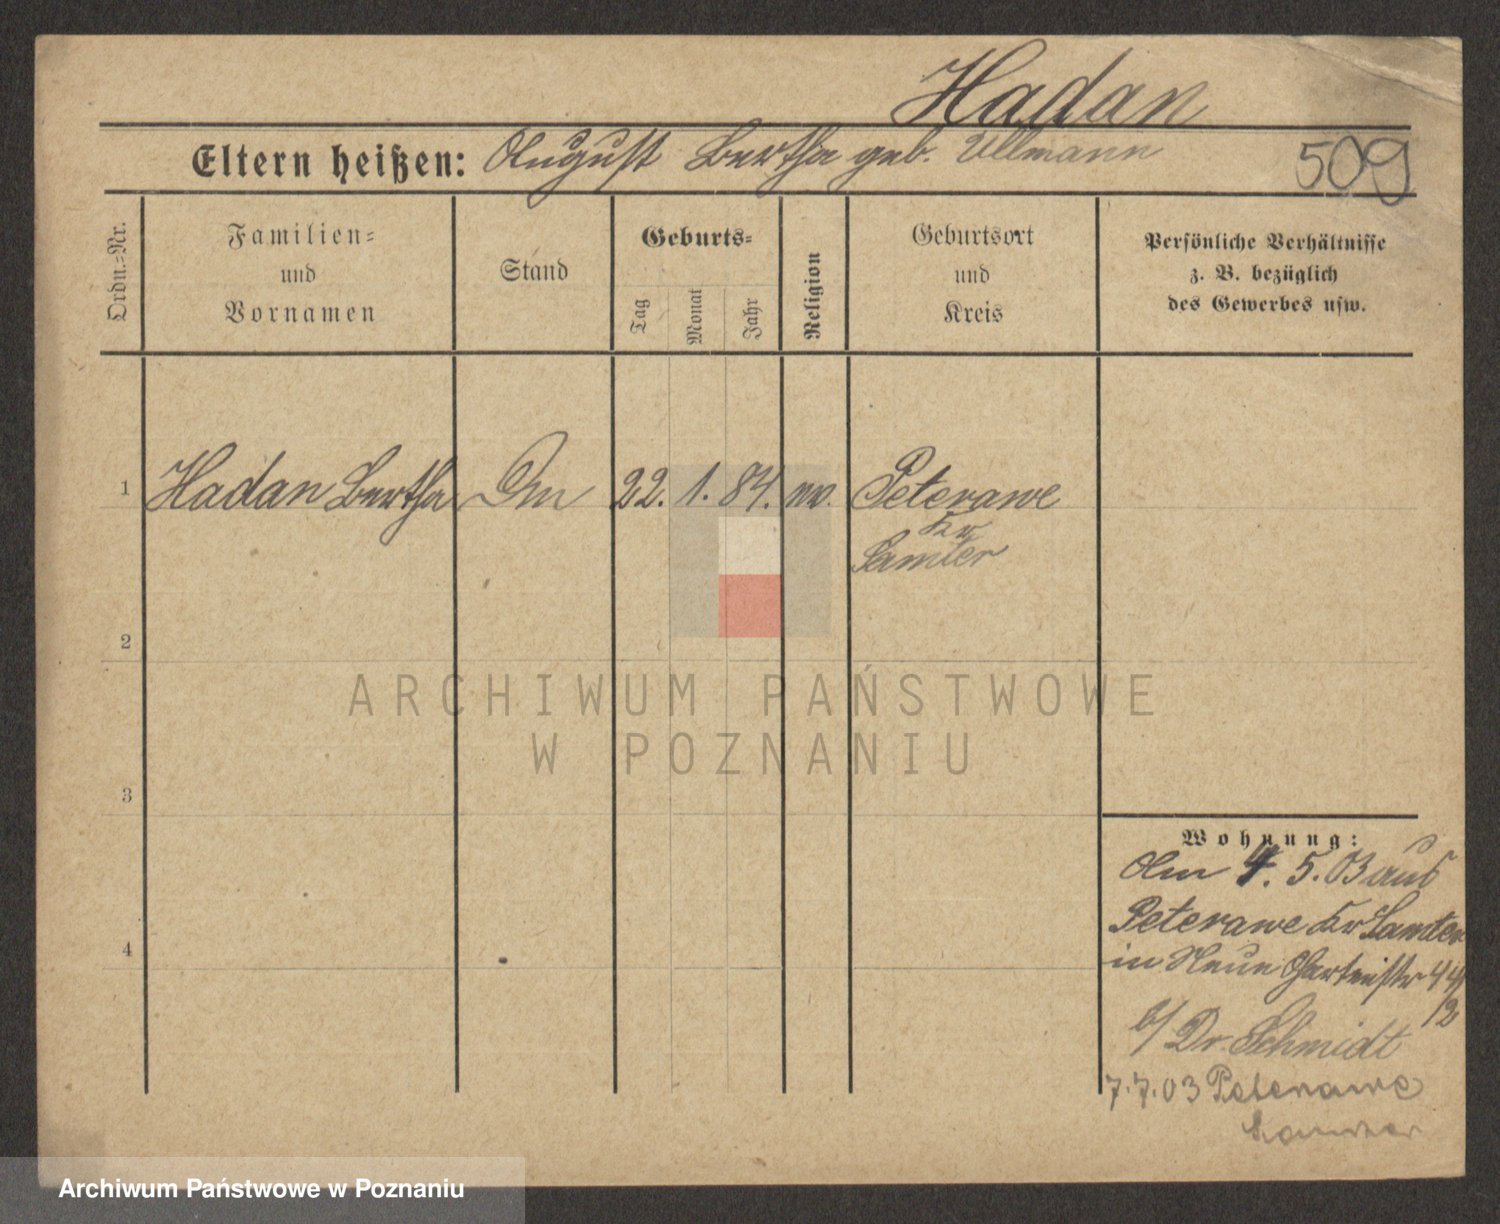 Hadan
Eltern heißen: August Bertha geb. Ullmann
509
Ordn.=Nr.
Familien=
und
Vornamen
Stand
Geburts=
Tag
Monat
Jahr
Religion
Geburtsort
und
Kreis
Persönliche Verhältnisse
z. B. bezüglich
des Gewerbes usw.
1 Hadan Bertha 22. 1. 84. ev. Peterawe
Kr
Samter
2
ARCHIWUM PAŃSTWOWE
W POZNANIU
3
4
Wohnung:
Am 4. 5. 03 aus
Peterawe Kr Samter
in Neue Gartenstr 44
/2
b/ Dr. Schmidt
7.7.03 Peterawe
Samter
Archiwum Państwowe w Poznaniu